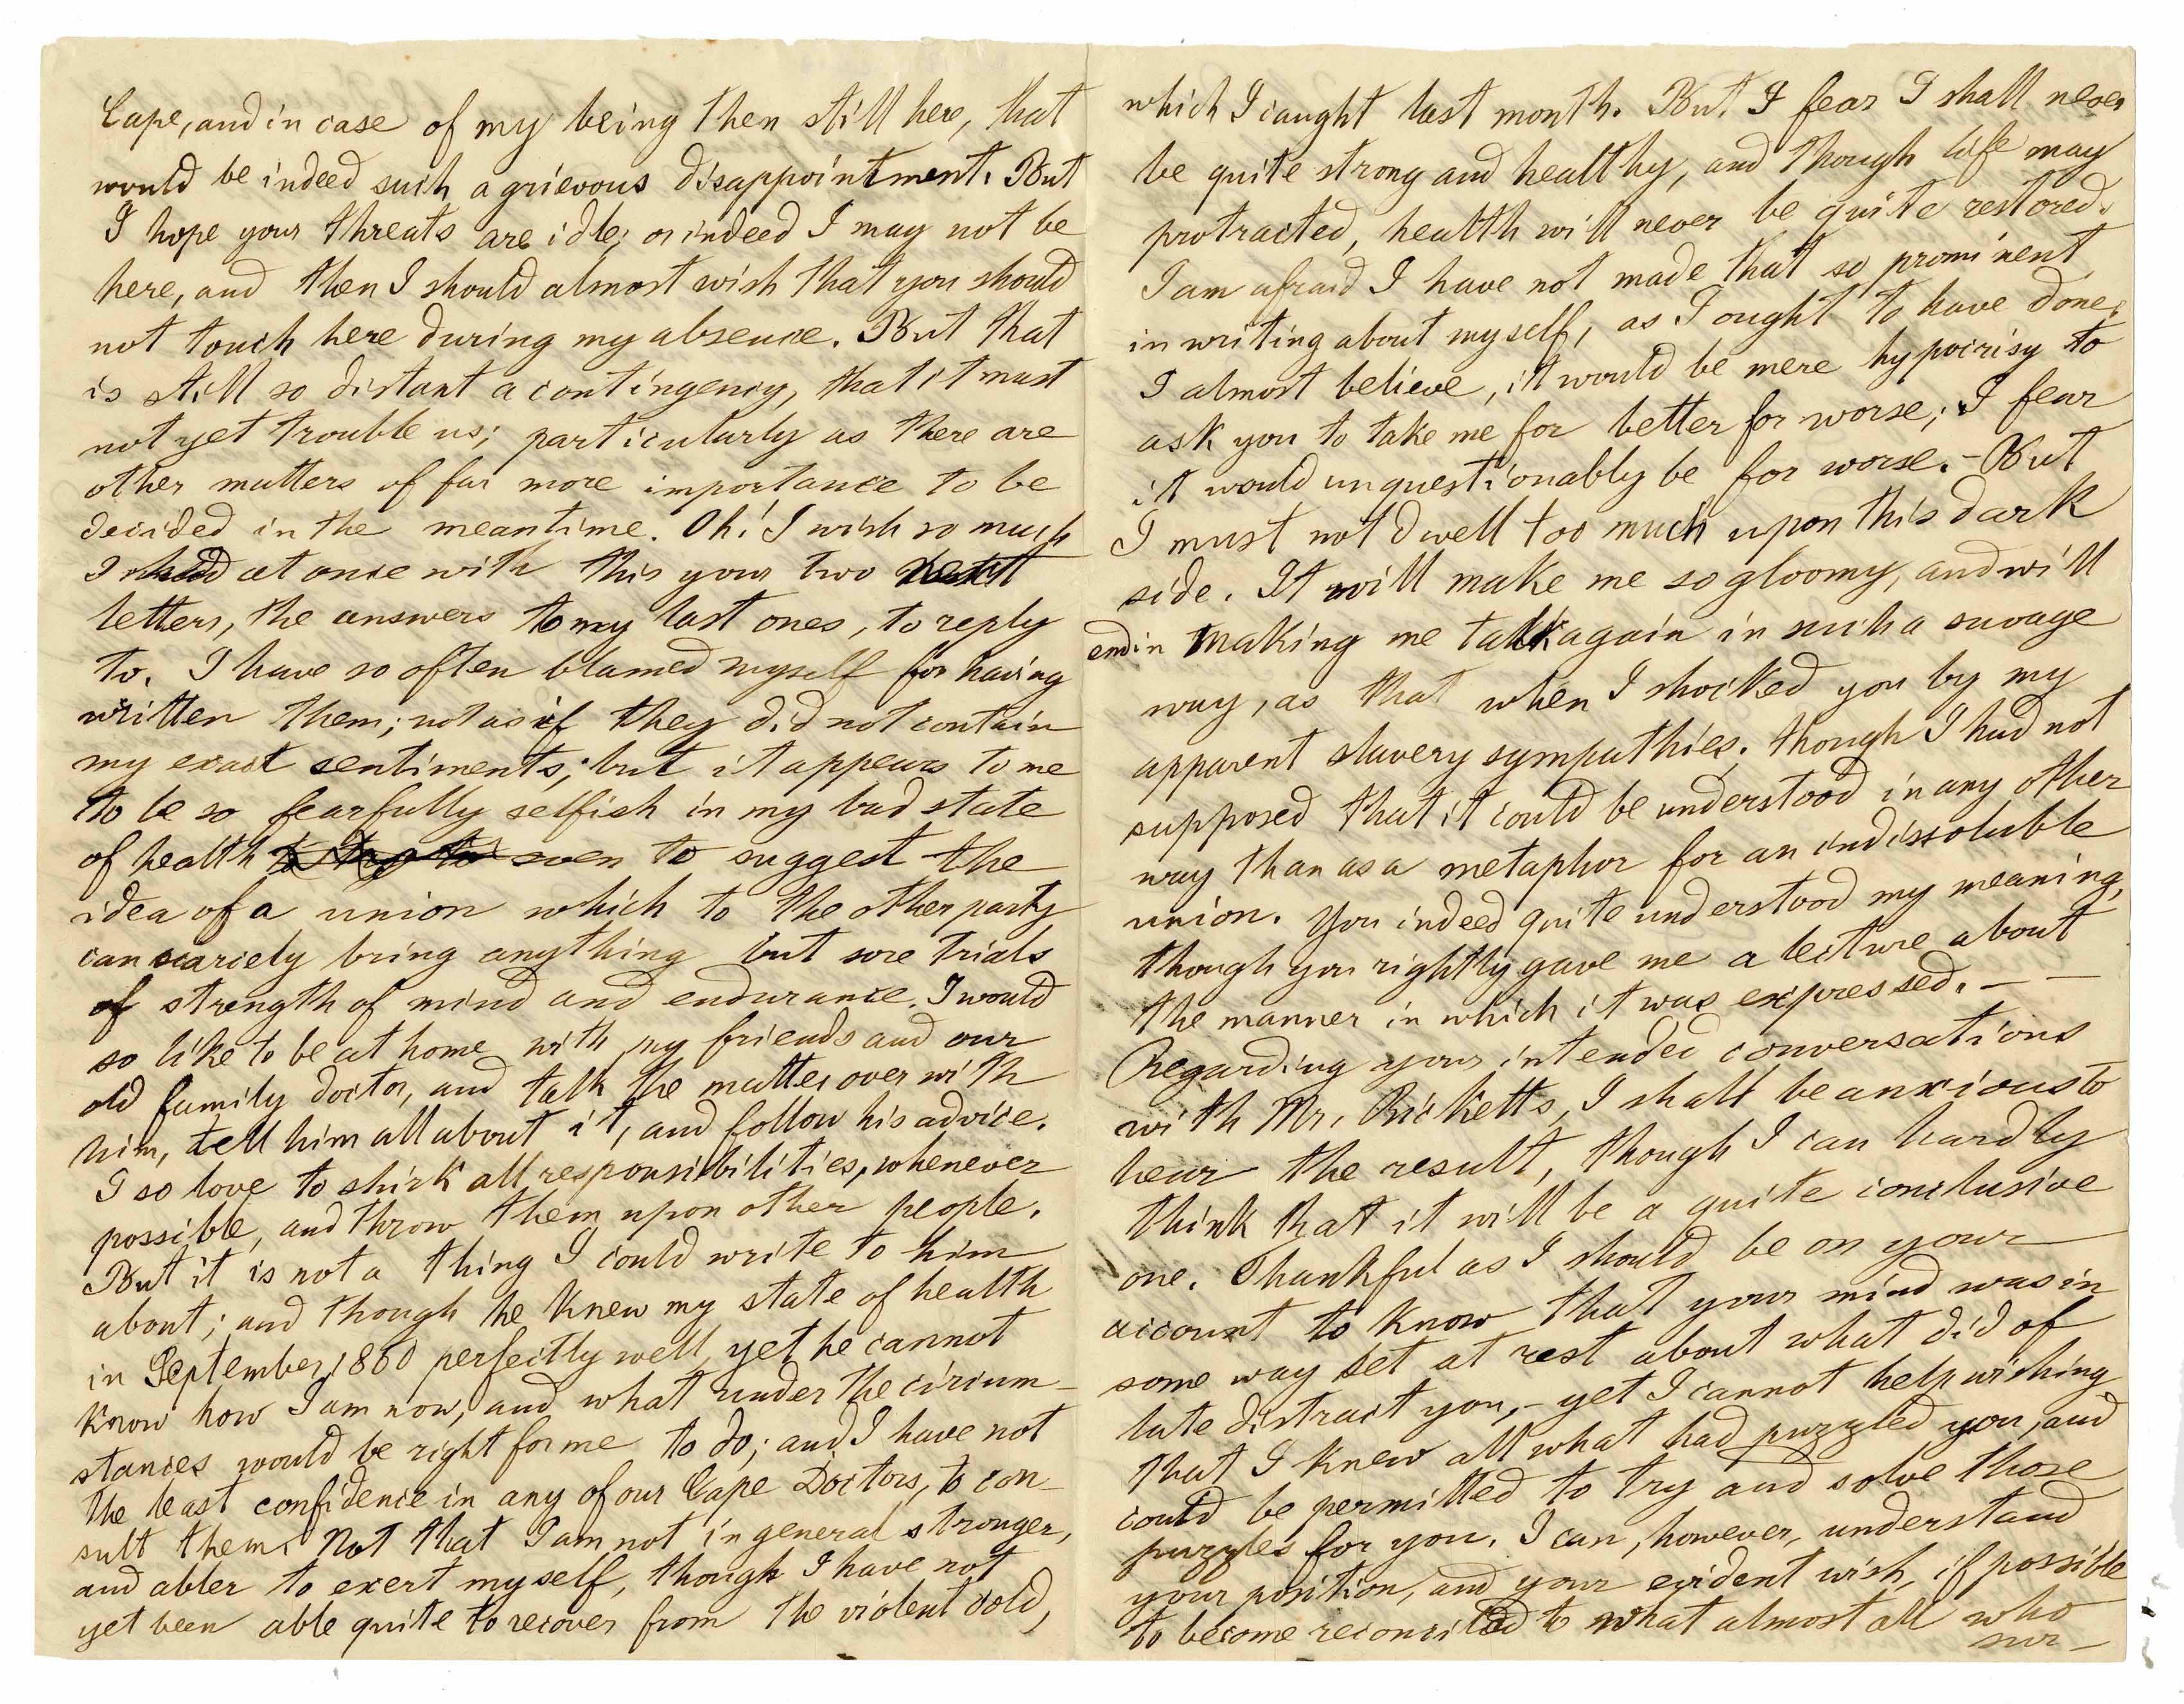 Cape, and in case of my being then still here, that
would be indeed such a grievous disappointment. But
I hope your threats are idle; or indeed I may not be
here, and then I should almost wish that you should
not touch here during my absence. But that
is still so distant a contingency, that it must
not yet trouble us; particularly as there are
other matters of far more importance to be
decided in the meantime. Oh! I wish so much
I had at once with this your two next
letters, the answers to my last ones, to reply
to. I have so often blamed myself for having
written them; not as if they did not contain
my exact sentiments; but it appears to me
to be so fearfully selfish in my bad state
of health even to suggest the
idea of a union which to the other party
can scarcely bring anything but sore trials
of strength of mind and endurance. I would
so like to be at home with my friends and our
old family doctor, and talk the matter over with
him, tell him all about it, and follow his advice.
I so love to shirk all responsibilities, whenever
possible, and throw them upon other people.
But it is not a thing I could write to him
about; and though he knew my state of health
in September 1860 perfectly well, yet he cannot
know how I am now, and what under the circum-
stances would be right for me to do; and I have not
the least confidence in any of our Cape Doctors, to con-
sult them. Not that I am not in general stronger,
and abler to exert myself, though I have not
yet been able quite to recover from the violent cold,
which I caught last month. But I fear I shall never
be quite strong and healthy, and though life may
protracted, health will never be quite restored.
I am afraid I have not made that so prominent
in writing about myself, as I ought to have done.
I almost believe, it would be mere hypocrisy to
ask you to take me for better for worse; I fear
it would unquestionably be for worse. - But
I must not dwell too much upon this dark
side. It will make me so gloomy, and will
end in making me talk again in such a savage
way, as that when I shocked you by my
apparent slavery sympathies; though I had not
supposed that it could be understood in any other
way than as a metaphor for an indissoluble
union. You indeed quite understood my meaning,
though you rightly gave me a lecture about
the manner in which it was expressed. - -
Regarding your intended conversations
with Mr. Ricketts, I shall be anxious to
hear the result, though I can hardly
think that it will be a quite conclusive
one. Thankful as I should be on your
account to know that your mind was in
some way set at rest about what did of
late distract you, - yet I cannot help wishing
that I knew all what had puzzled you, and
could be permitted to try and solve those
puzzles for you. I can, however, understand
your position, and your evident wish, if possible
to become reconciled to what almost all who
sur-